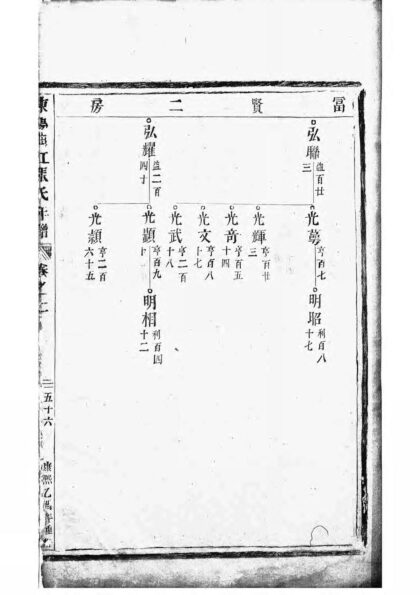 冨賢二房
弘聯
百廿
三
光
亨百七
明昭
利百八
十七
光輝
亨百廿
三
光奇
亨百五
十四
光文
亨百八
十七
光武
亨二百
十八
弘耀
二百
四十
光
亨百九
十
明相
利百四
十二
光
亨二百
六十五
東
江張氏
卷之二
五十六
康熙乙